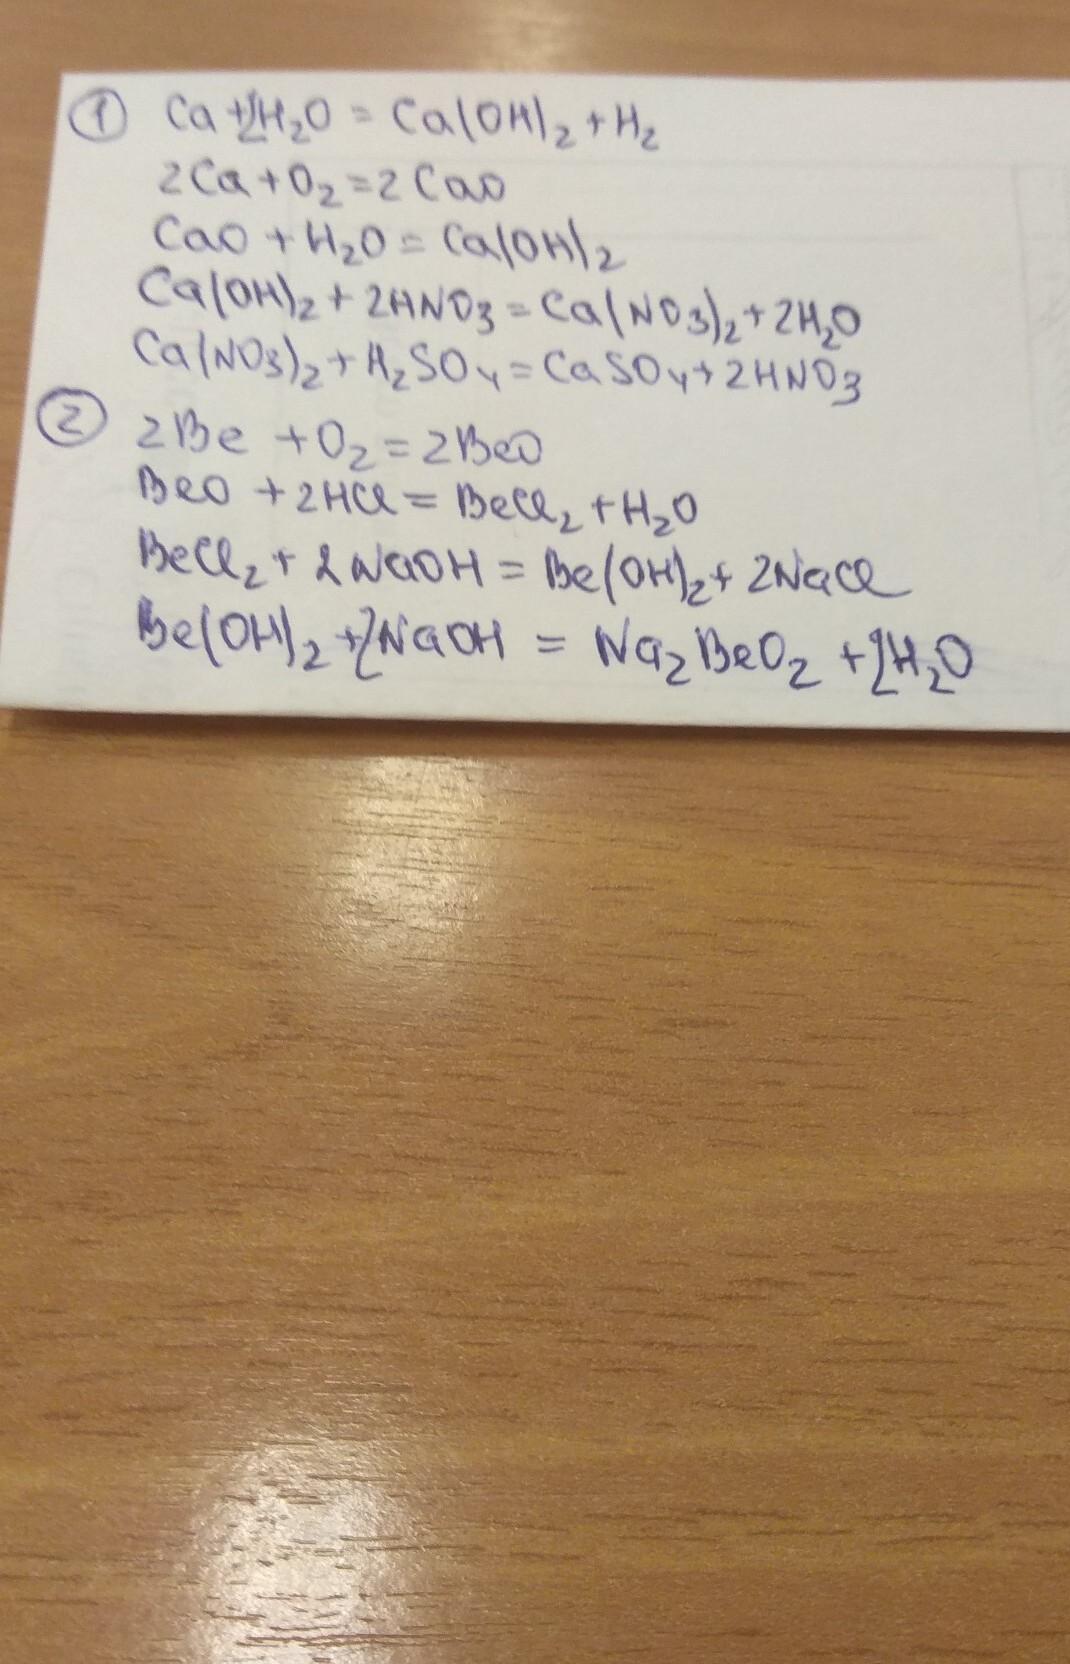 ① Ca+2H₂O = Ca(OH)₂ + H₂
2Ca + O₂ = 2CaO
CaO + H₂O = Ca(OH)₂
Ca(OH)₂ + 2HNO₃ = Ca(NO₃)₂ + 2H₂O
Ca(NO₃)₂ + H₂SO₄ = CaSO₄ + 2HNO₃
② 2Be + O₂ = 2BeO
BeO + 2HCl = BeCl₂ + H₂O
BeCl₂ + 2NaOH = Be(OH)₂ + 2NaCl
Be(OH)₂ + 2NaOH = Na₂BeO₂ + 2H₂O